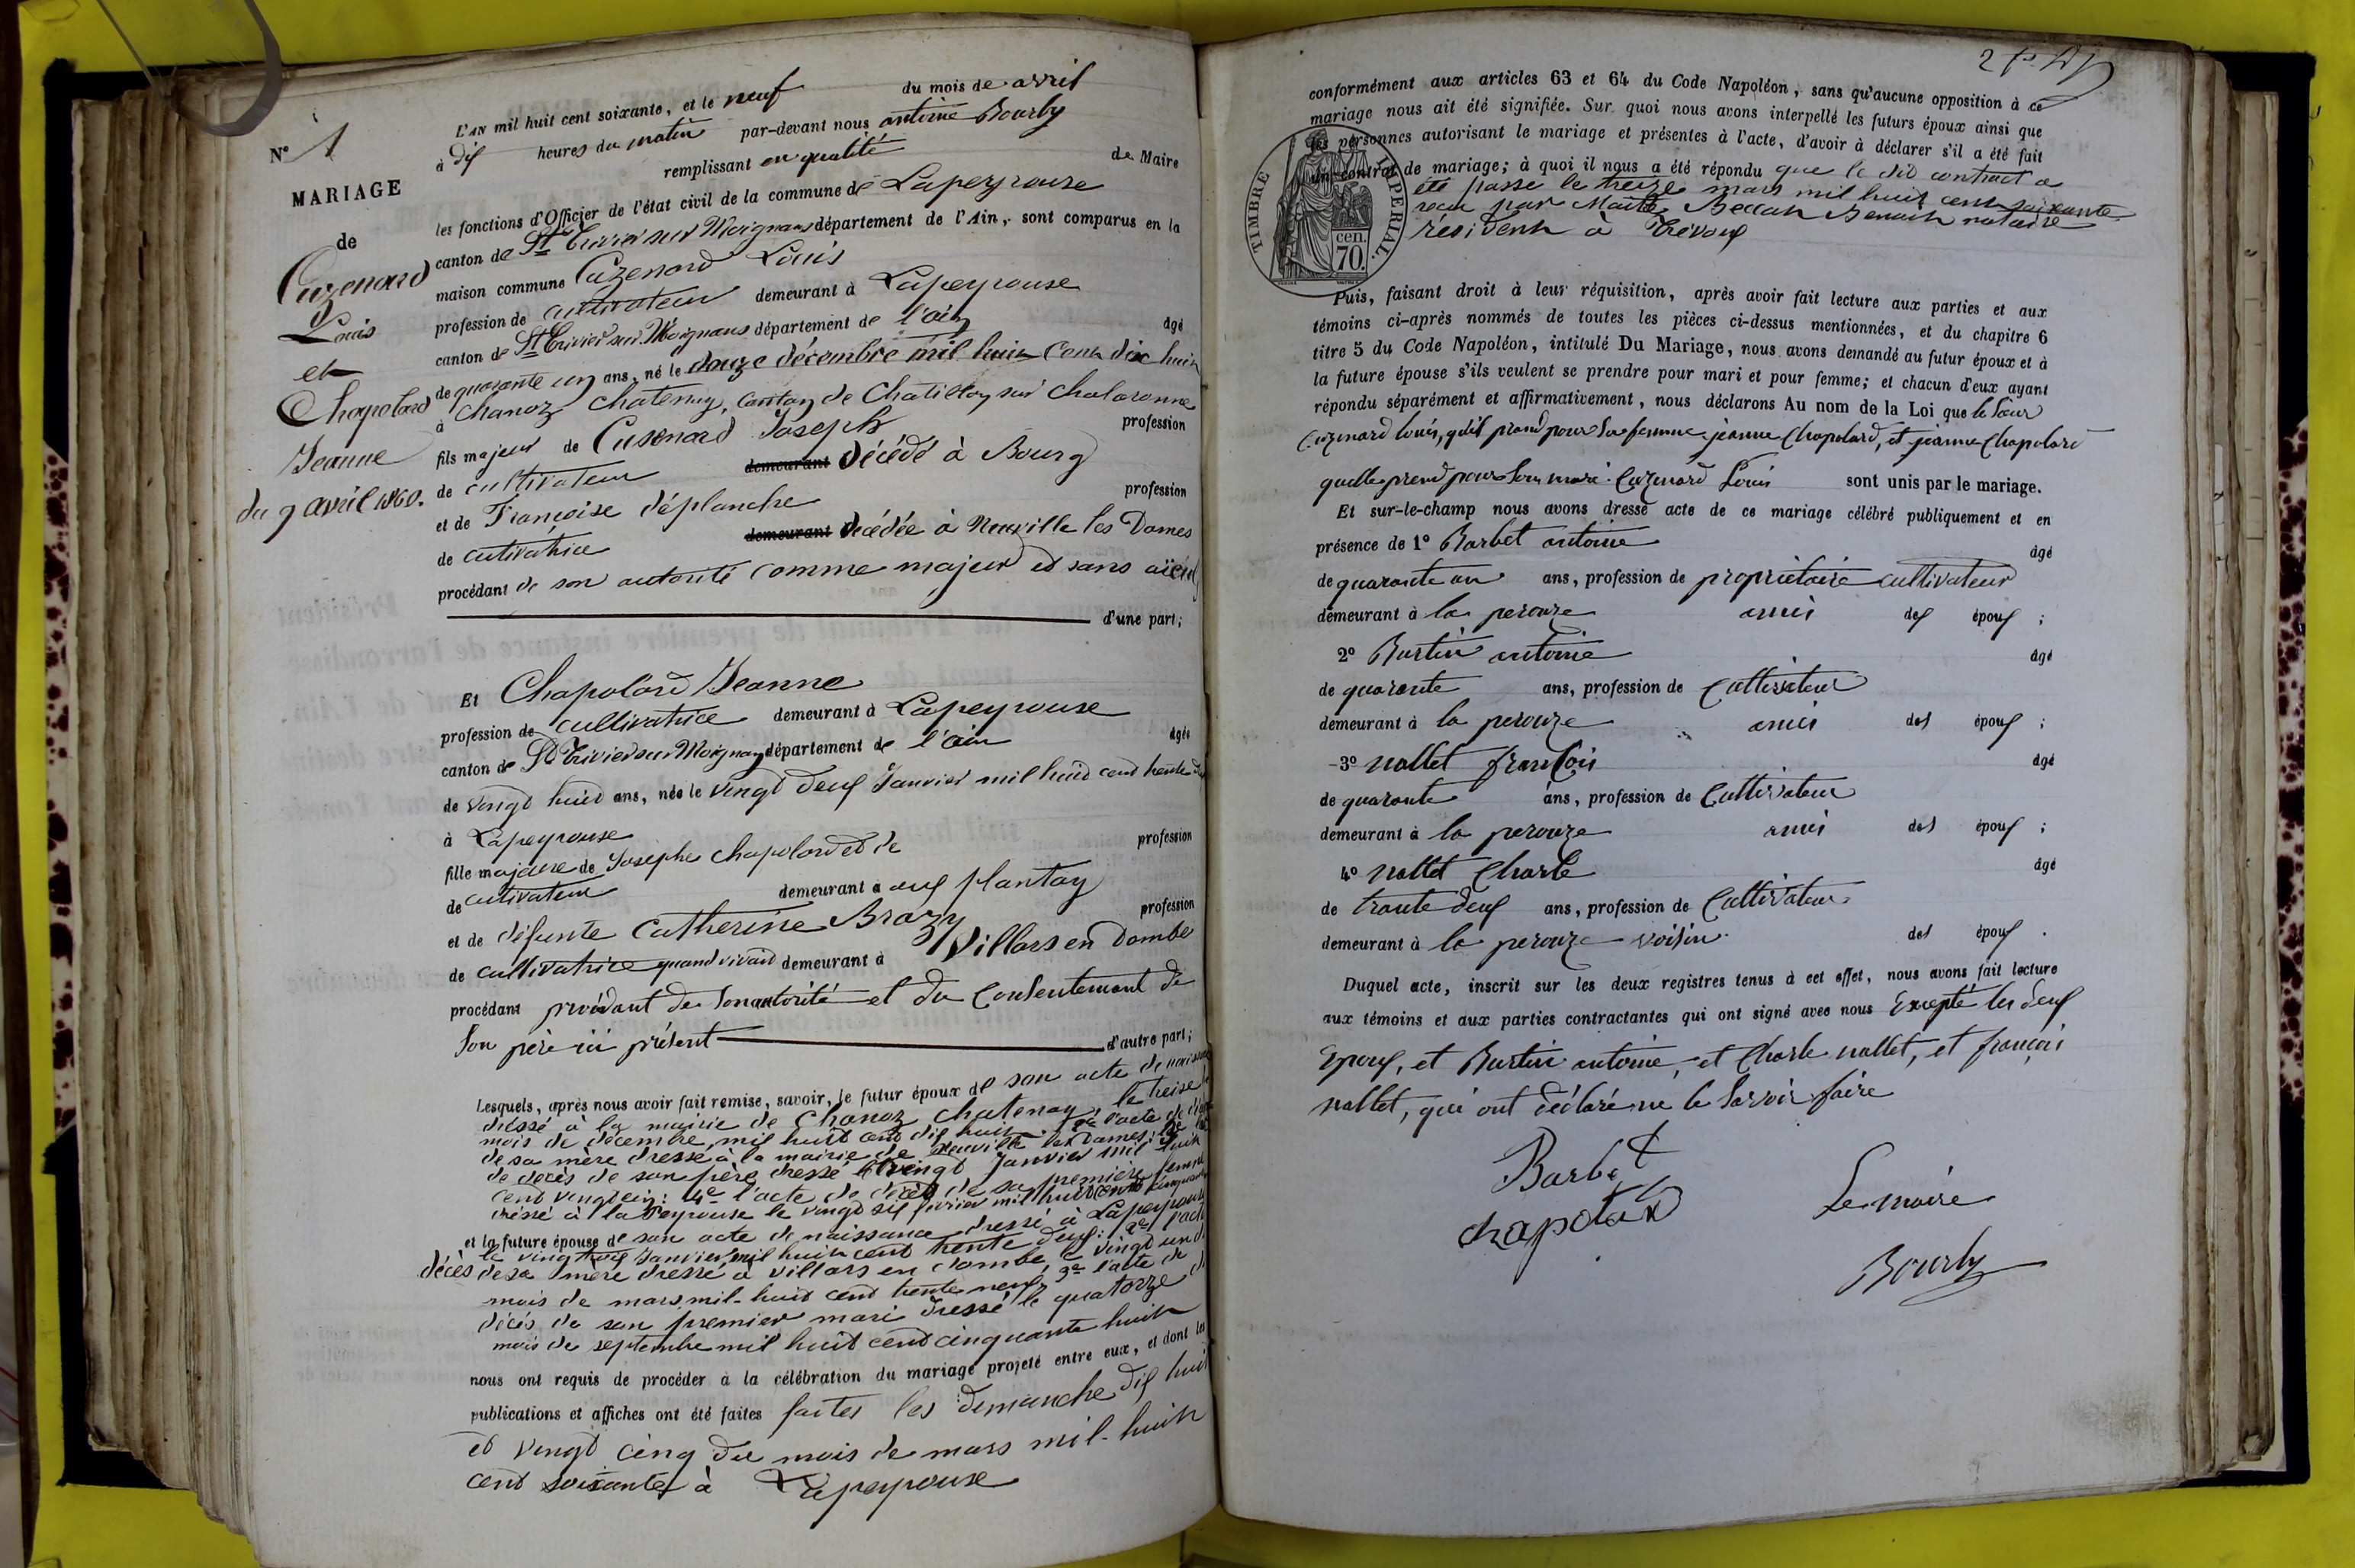 N° 1
MARIAGE
de
Cuzenard
Louis
et
Chapolard
Jeanne
du 9 avril 1860.
L'AN mil huit cent soixante, et le neuf du mois de avril
à dix heures du matin par-devant nous antoine Bourby
remplissant en qualité de Maire
les fonctions d'Officier de l'état civil de la commune de Lapeyrouse
canton de St Trivier sur Moignans département de l'Ain, sont comparus en la
maison commune Cuzenard Louis
profession de cultivateur demeurant à Lapeyrouse
canton de St Trivier sur Moignans département de l'ain âgé
de quarante un ans, né le douze décembre mil huit cent dix huit
à Chanoz Chatenay, canton de Chatillon sur Chalaronne
fils majeur de Cusenard Joseph profession
de cultivateur demeurant décédé à Bourg
et de Françoise déplanche profession
de cultivatrice demeurant décédée à Neuville les Dames
procédant de son autorité comme majeur et sans aïeul
d'une part;
Et Chapolard Jeanne
profession de cultivatrice demeurant à Lapeyrouse
canton de St Trivier sur Moignans département de l'ain âgée
de vingt huit ans, née le vingt deux Janvier mil huit cent trente
à Lapeyrouse
fille majeure de Josephe Chapolard et de profession
de cultivateur demeurant à aux plantay
et de défunte Catherine Brazy profession
de cultivatrice quand vivait demeurant à Villars en Dombe
procédant procédant de son autorité et du Consentement de
Son père ici présent d'autre part;
Lesquels, après nous avoir fait remise, savoir, le futur époux de son acte de naissance
dressé à la mairie de Chanoz Chatenay, le treise
mois de décembre mil huit cent dix huit. 2e l'acte de
de sa mère dressé à la mairie de Neuville les Dames; 3e
de décès de son père dressé le vingt Janvier mil huit
cent vingt cinq: 4e l'acte de décès de sa première femme
dressé à la Peyrouse le vingt six février mil huit cent cinquante
et la future épouse de son acte de naissance dressé à Lapeyrouse
le vingt trois Janvier mil huit cent trente deux: 2e l'acte
décès de sa mère dressé à Villars en dombe, le vingt un
mois de mars mil-huit cent trente neuf, 3e l'acte de
décès de son premier mari dressé le quatorze
mois de septembre mil huit cent cinquante huit
nous ont requis de procéder à la célébration du mariage projeté entre eux, et dont les
publications et affiches ont été faites faites les dimanche dix huit
et vingt cinq du mois de mars mil-huit
cent soixante à Lapeyrouse
conformément aux articles 63 et 64 du Code Napoléon, sans qu'aucune opposition à ce
mariage nous ait été signifiée. Sur quoi nous avons interpellé les futurs époux ainsi que
les personnes autorisant le mariage et présentes à l'acte, d'avoir à déclarer s'il a été fait
un contrat de mariage; à quoi il nous a été répondu que le dit contract a
été passé le treize mars mil huit cent soixante
recu par Maitre Beccat Benoit notaire
résident à Trévoux
TIMBRE IMPERIAL.
cen.
70.
Puis, faisant droit à leur réquisition, après avoir fait lecture aux parties et aux
témoins ci-après nommés de toutes les pièces ci-dessus mentionnées, et du chapitre 6
titre 5 du Code Napoléon, intitulé Du Mariage, nous avons demandé au futur époux et à
la future épouse s'ils veulent se prendre pour mari et pour femme; et chacun d'eux ayant
répondu séparément et affirmativement, nous déclarons Au nom de la Loi que le Sieur
Cuzenard louis, qu'il prand pour Sa femme jeanne Chapolard, et jeanne Chapolard
quelle prend pour Son mari Cuzenard Louis sont unis par le mariage.
Et sur-le-champ nous avons dressé acte de ce mariage célébré publiquement et en
présence de 1° Barbet antoine âgé
de quarante un ans, profession de propriétaire cultivateur
demeurant à la perouze amis des époux ;
2° Burtin antoine âgé
de quarante ans, profession de Cultivateur
demeurant à la perouze amis des époux ;
3° nallet françois âgé
de quarante ans, profession de Cultivateur
demeurant à la perouze amis des époux ;
4° nallet Charle âgé
de trante deux ans, profession de Cultivateur
demeurant à la perouze voisin des époux .
Duquel acte, inscrit sur les deux registres tenus à cet effet, nous avons fait lecture
aux témoins et aux parties contractantes qui ont signé avec nous Excepté les deux
Epoux, et Burtin antoine, et Charle nallet, et françois
nallet, qui ont déclaré ne le Savoir faire
Barbet
chapolard
Le maire
Bourby